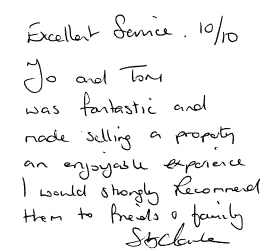 Excellent Service. 10/10
Jo and Tom
was fantastic and
made selling a property
an enjoyable experience
I would strongly Recommend
them to friends & family